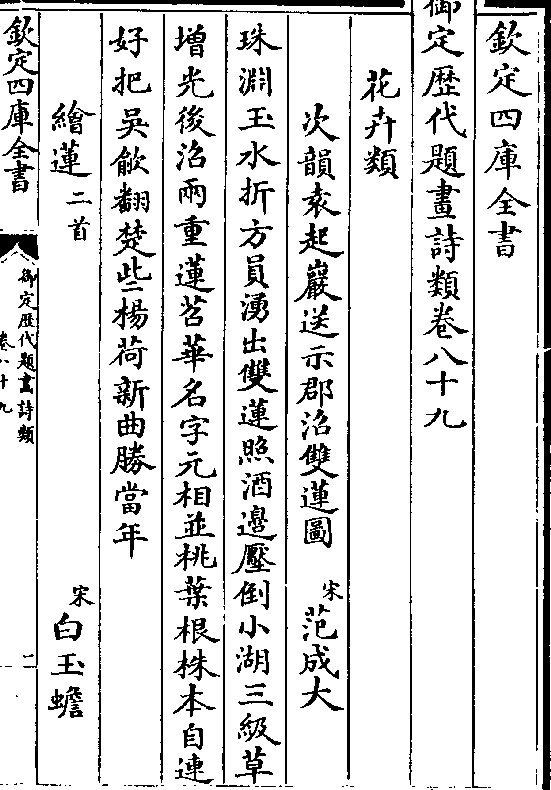 欽定四庫全書
御定歷代題畫詩類卷八十九
花卉類
次韻袁起巖送示郡治雙蓮圖 宋 范成大
珠淵玉水折方員湧出雙蓮照酒邉壓倒小湖三級草
增光後沼兩重蓮苕華名字元相並桃葉根株本自連
好把吳歈翻楚些楊荷新曲勝當年
繪蓮二首 宋 白玉蟾
欽定四庫全書
御定歷代題畫詩類
卷八十九
一